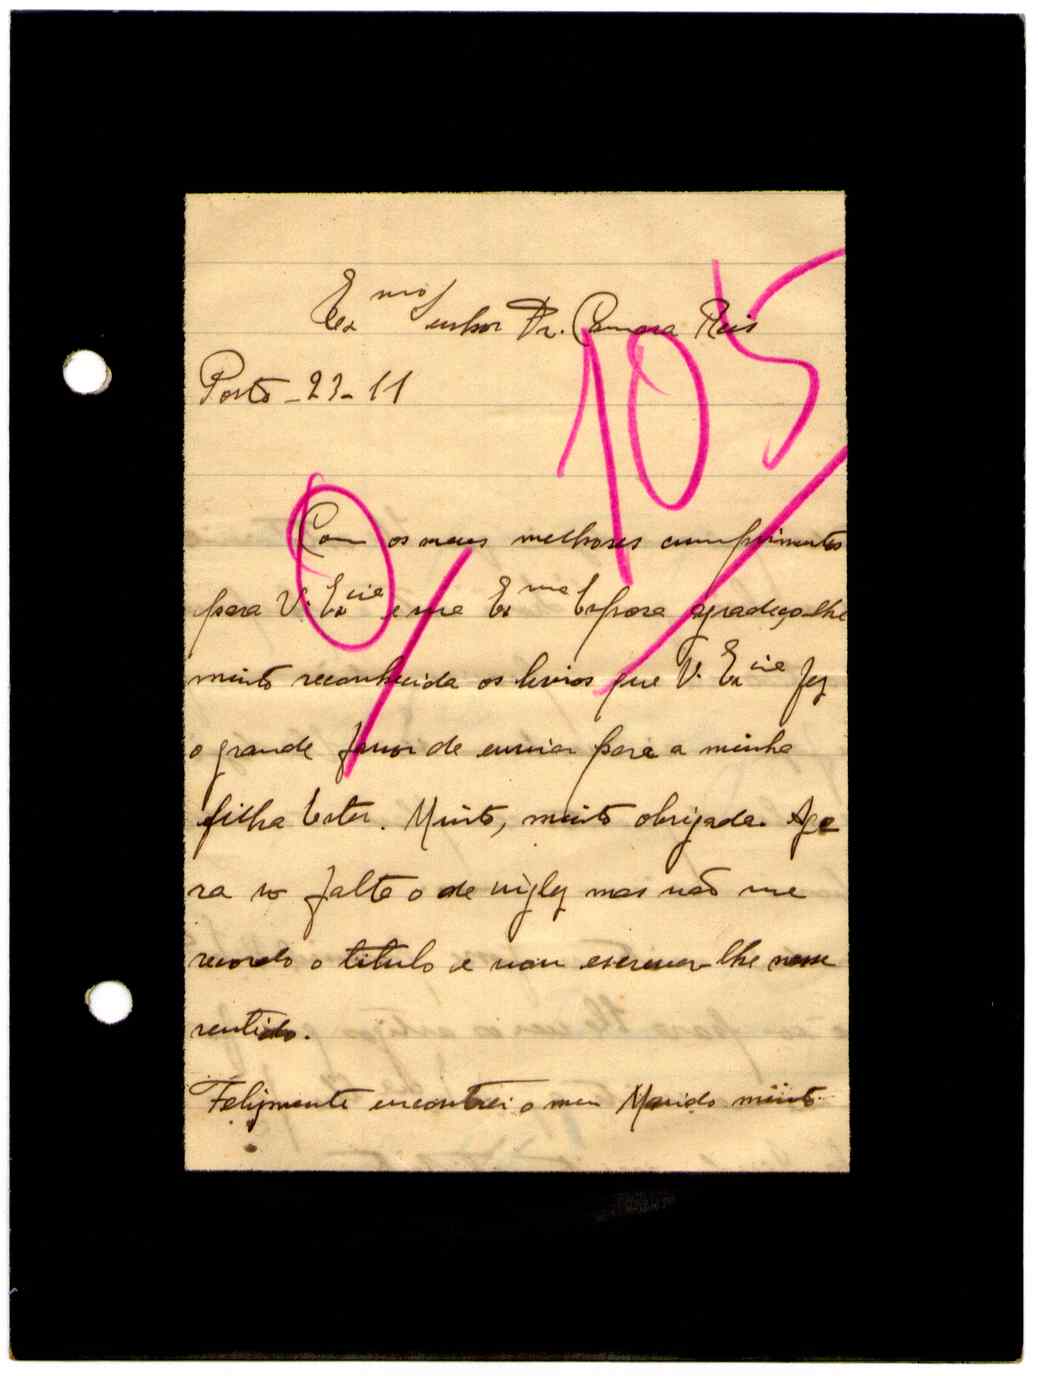 Exmo Senhor Dr. Camara Reis
Porto - 23 - 11
105
Com os meus melhores cumprimentos
para V. Excia e sua Exma Esposa agradeço-lhe
muito reconhecida os livros que V. Excia fez
o grande favor de enviar para a minha
filha Ester. Muito, muito obrigada. Ago
ra só falta o de inglez mas não me
recordo o titulo e vou escrever-lhe nesse
sentido.
Felizmente encontrei o meu Marido muito